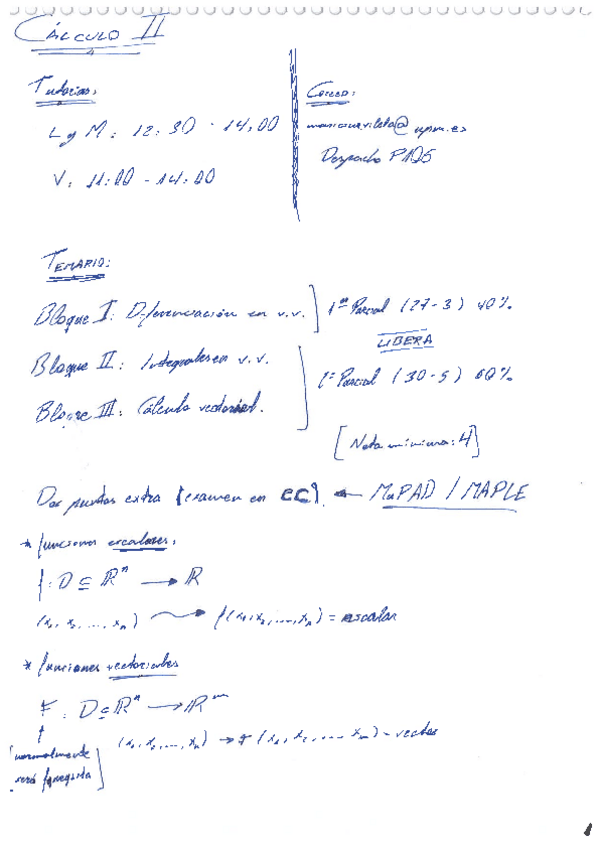 CÁLCULO II
Tutorías:
L y M: 12:30 - 14:00
V: 11:00 - 14:00
Correo:
@upm.es
Despacho
TEMARIO:
Bloque I: Diferenciación en v.v.
Bloque II: Integrales en v.v.
Bloque III: Cálculo vectorial.
1er Parcial (27-3) 40%
LIBERA
Parcial (30-5) 60%
[Nota mínima: 4]
Dos puntos extra [examen en CC] ← MuPAD / MAPLE
* funciones escalares:
f: D ⊆ ℝⁿ → ℝ
(x₁, x₂, ..., xₙ) → f(x₁, x₂, ..., xₙ) = escalar
* funciones vectoriales
F: D ⊆ ℝⁿ → ℝᵐ
(x₁, x₂, ..., xₙ) → F(x₁, x₂, ..., xₙ) = vector
[normalmente
será pequeña]